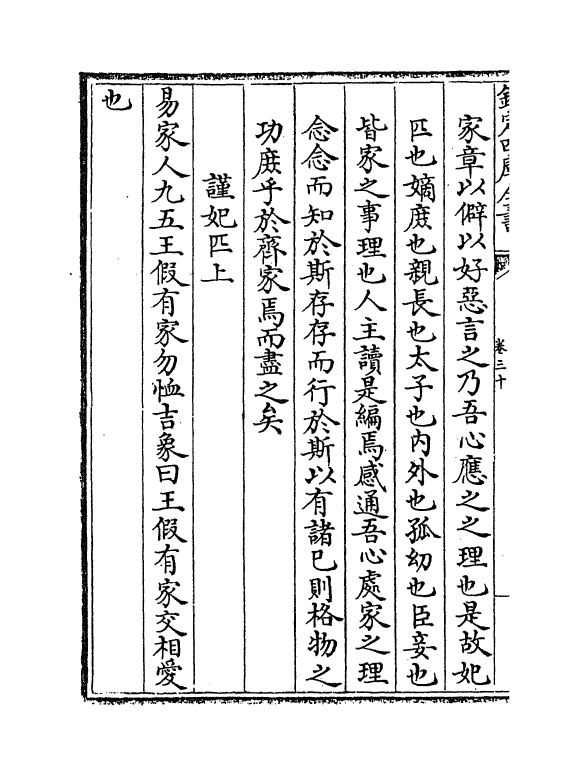 欽定四庫全書
卷三十
家章以僻以好惡言之乃吾心應之之理也是故妃
匹也嫡庻也親長也太子也内外也孤幼也臣妾也
皆家之事理也人主讀是編焉感通吾心處家之理
念念而知於斯存存而行於斯以有諸已則格物之
功庻乎於齊家焉而盡之矣
謹妃匹上
易家人九五王假有家勿恤吉象曰王假有家交相愛
也